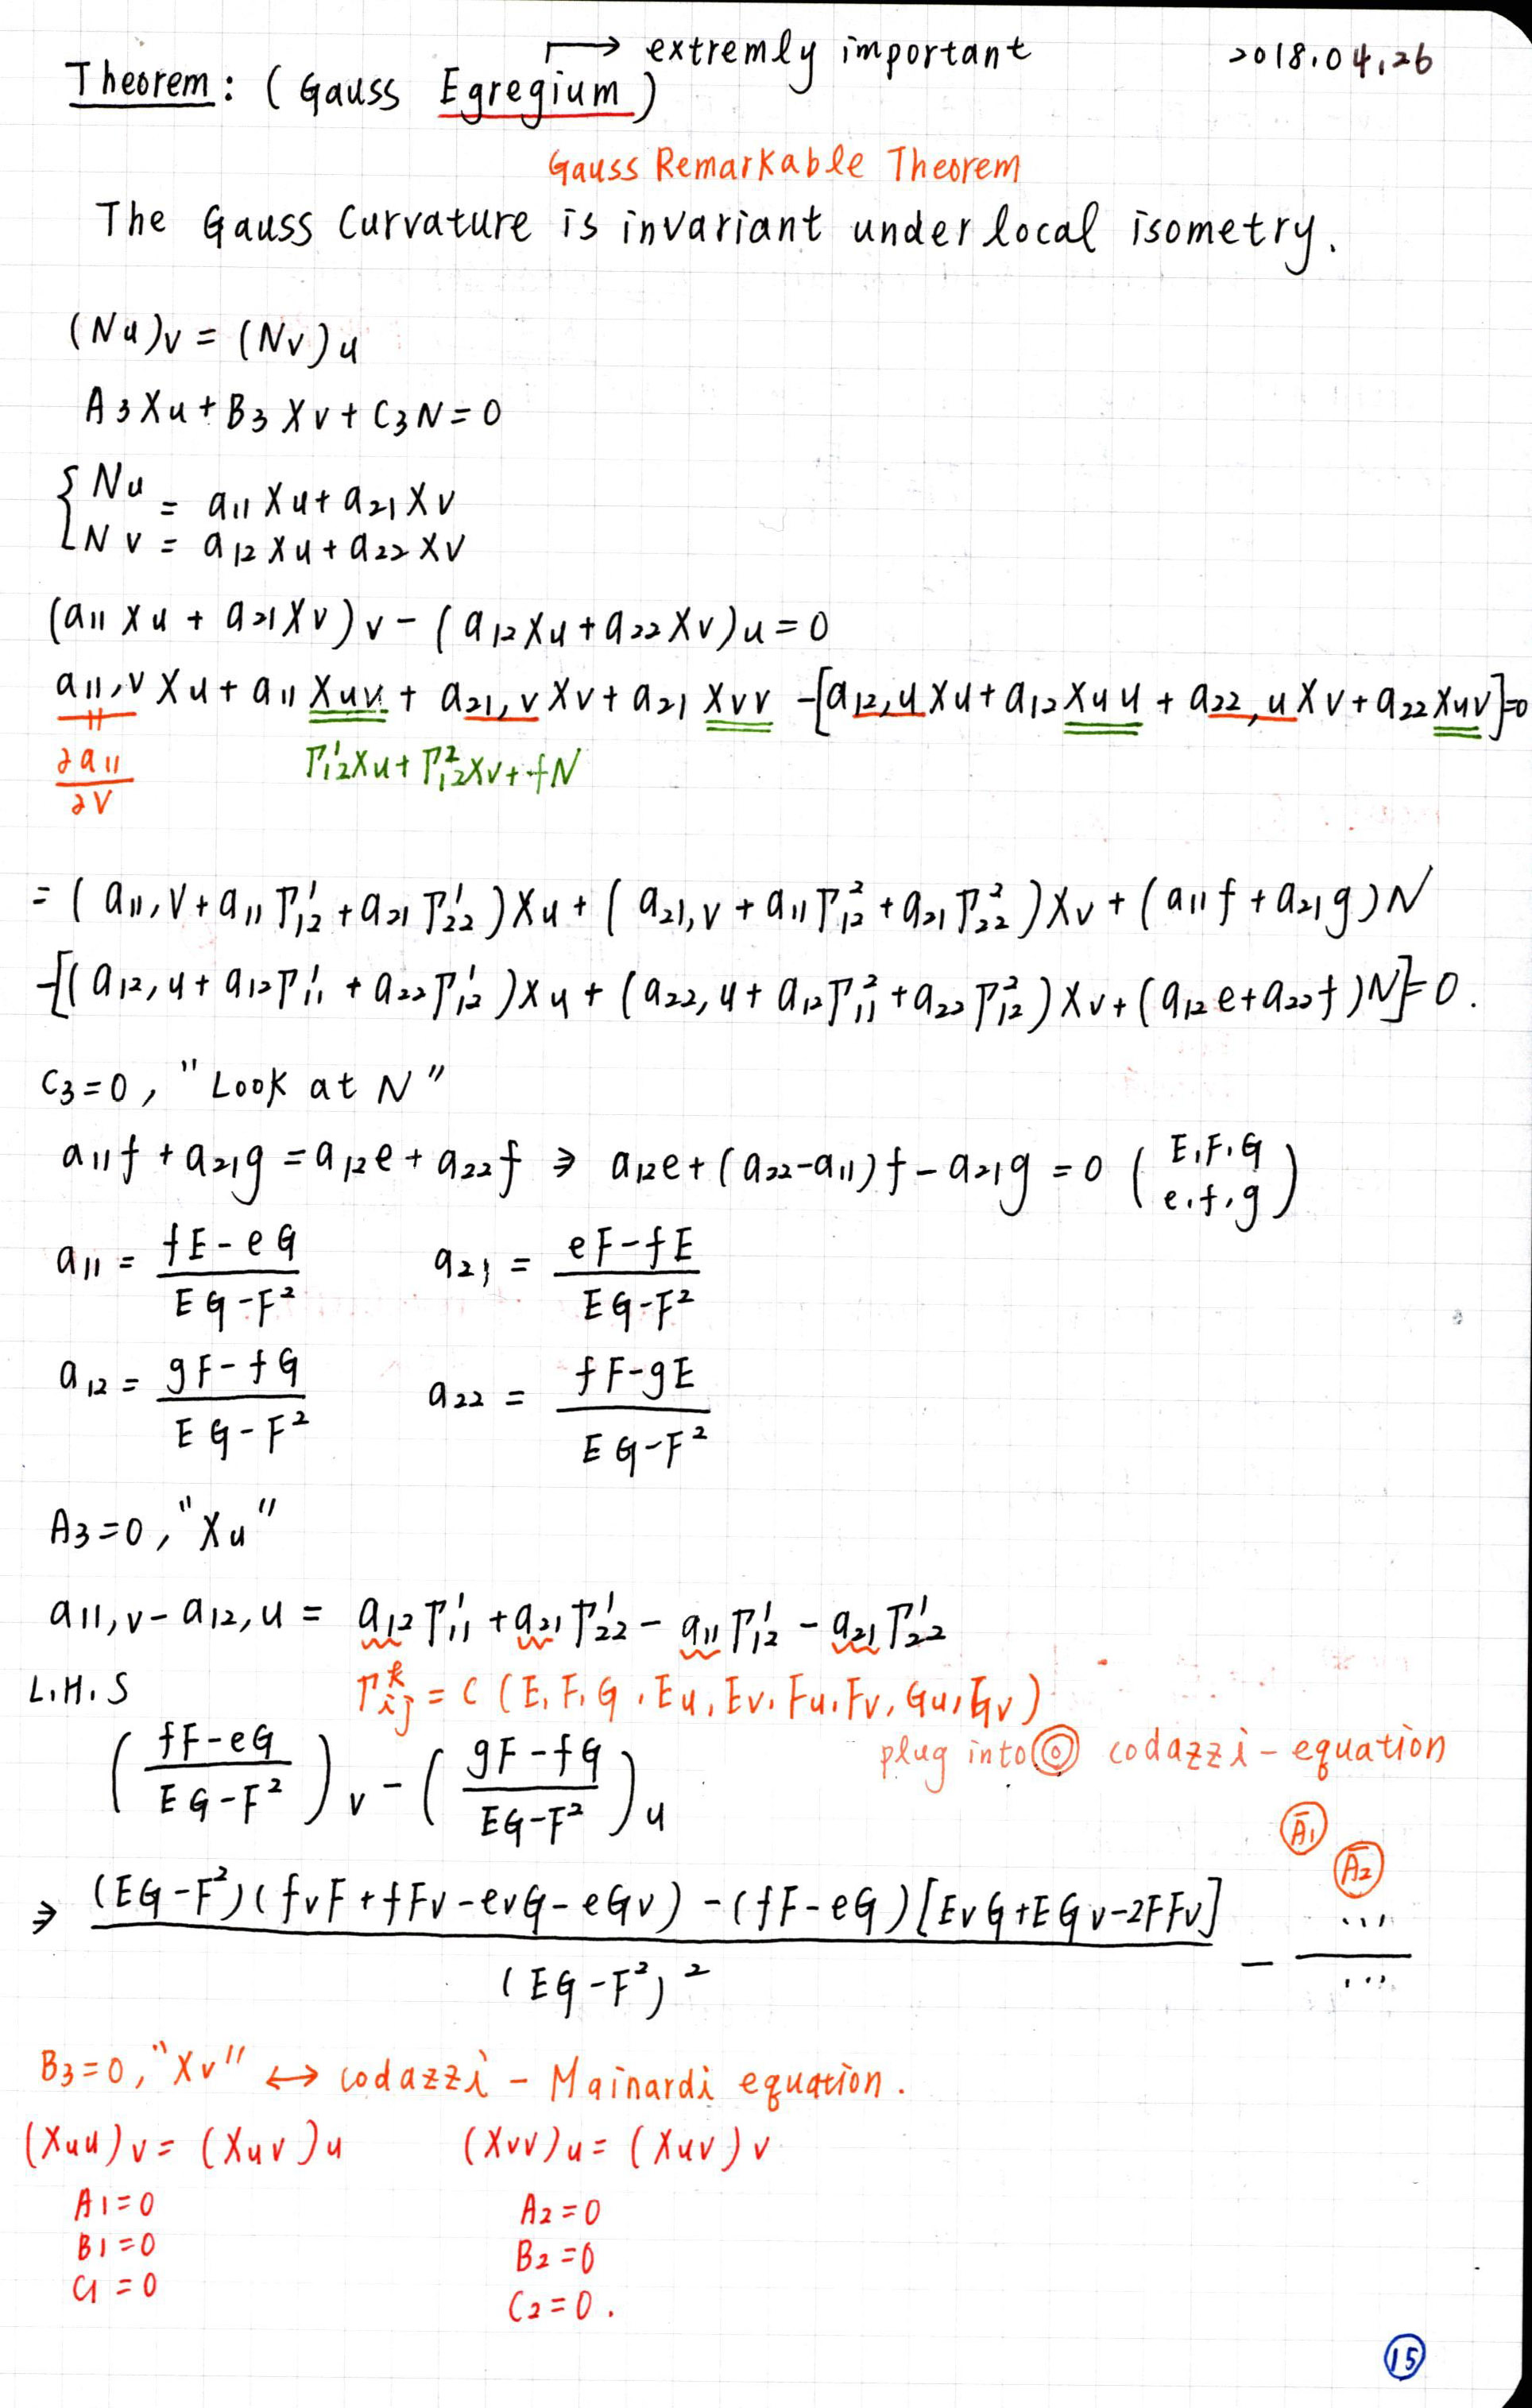 ⟼ extremly important 2018.04.26
Theorem: (Gauss Egregium)
Gauss Remarkable Theorem
The Gauss Curvature is invariant under local isometry.
(Nu)v = (Nv)u
A3Xu + B3Xv + C3N = 0
{ Nu = a11Xu + a21Xv
Nv = a12Xu + a22Xv
(a11Xu + a21Xv)v - (a12Xu + a22Xv)u = 0
a11,v Xu + a11 Xuv + a21,v Xv + a21 Xvv - [a12,u Xu + a12 Xuu + a22,u Xv + a22 Xuv] = 0
∂a11/∂v Γ¹₁₂Xu + Γ²₁₂Xv + fN
= (a11,v + a11Γ¹₁₂ + a21Γ¹₂₂)Xu + (a21,v + a11Γ²₁₂ + a21Γ²₂₂)Xv + (a11f + a21g)N
-[(a12,u + a12Γ¹₁₁ + a22Γ¹₁₂)Xu + (a22,u + a12Γ²₁₁ + a22Γ²₁₂)Xv + (a12e + a22f)N] = 0.
C3=0, "Look at N"
a11f + a21g = a12e + a22f ⇒ a12e + (a22-a11)f - a21g = 0 (E,F,G e,f,g)
a11 = (fE-eG)/(EG-F²) a21 = (eF-fE)/(EG-F²)
a12 = (gF-fG)/(EG-F²) a22 = (fF-gE)/(EG-F²)
A3=0, "Xu"
a11,v - a12,u = a12Γ¹₁₁ + a21Γ¹₂₂ - a11Γ¹₁₂ - a21Γ¹₂₂
L.H.S Γᵏᵢⱼ = C (E, F, G, Eu, Ev, Fu, Fv, Gu, Gv)
plug into ◎ codazzi-equation
((fF-eG)/(EG-F²))v - ((gF-fG)/(EG-F²))u
Ā1
Ā2
⇒ ((EG-F²)(fvF + fFv - evG - eGv) - (fF-eG)[EvG + EGv - 2FFv])/(EG-F²)² - .../...
B3=0, "Xv" ↔ codazzi - Mainardi equation.
(Xuu)v = (Xuv)u (Xvv)u = (Xuv)v
A1=0 A2=0
B1=0 B2=0
C1=0 C2=0.
15